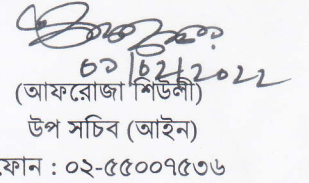 ০১/০২/২০২২
(আফরোজা শিউলী)
উপ সচিব (আইন)
ফোন : ০২-৫৫০০৭৫৩৬